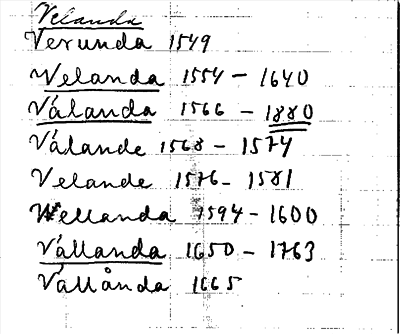 Velanda
Verunda 1549
Welanda 1554 – 1640
Válanda 1566 – 1880
Válande 1568 – 1574
Velande 1576 – 1581
Wellanda 1594 – 1600
Vállanda 1650 – 1763
Vállånda 1665